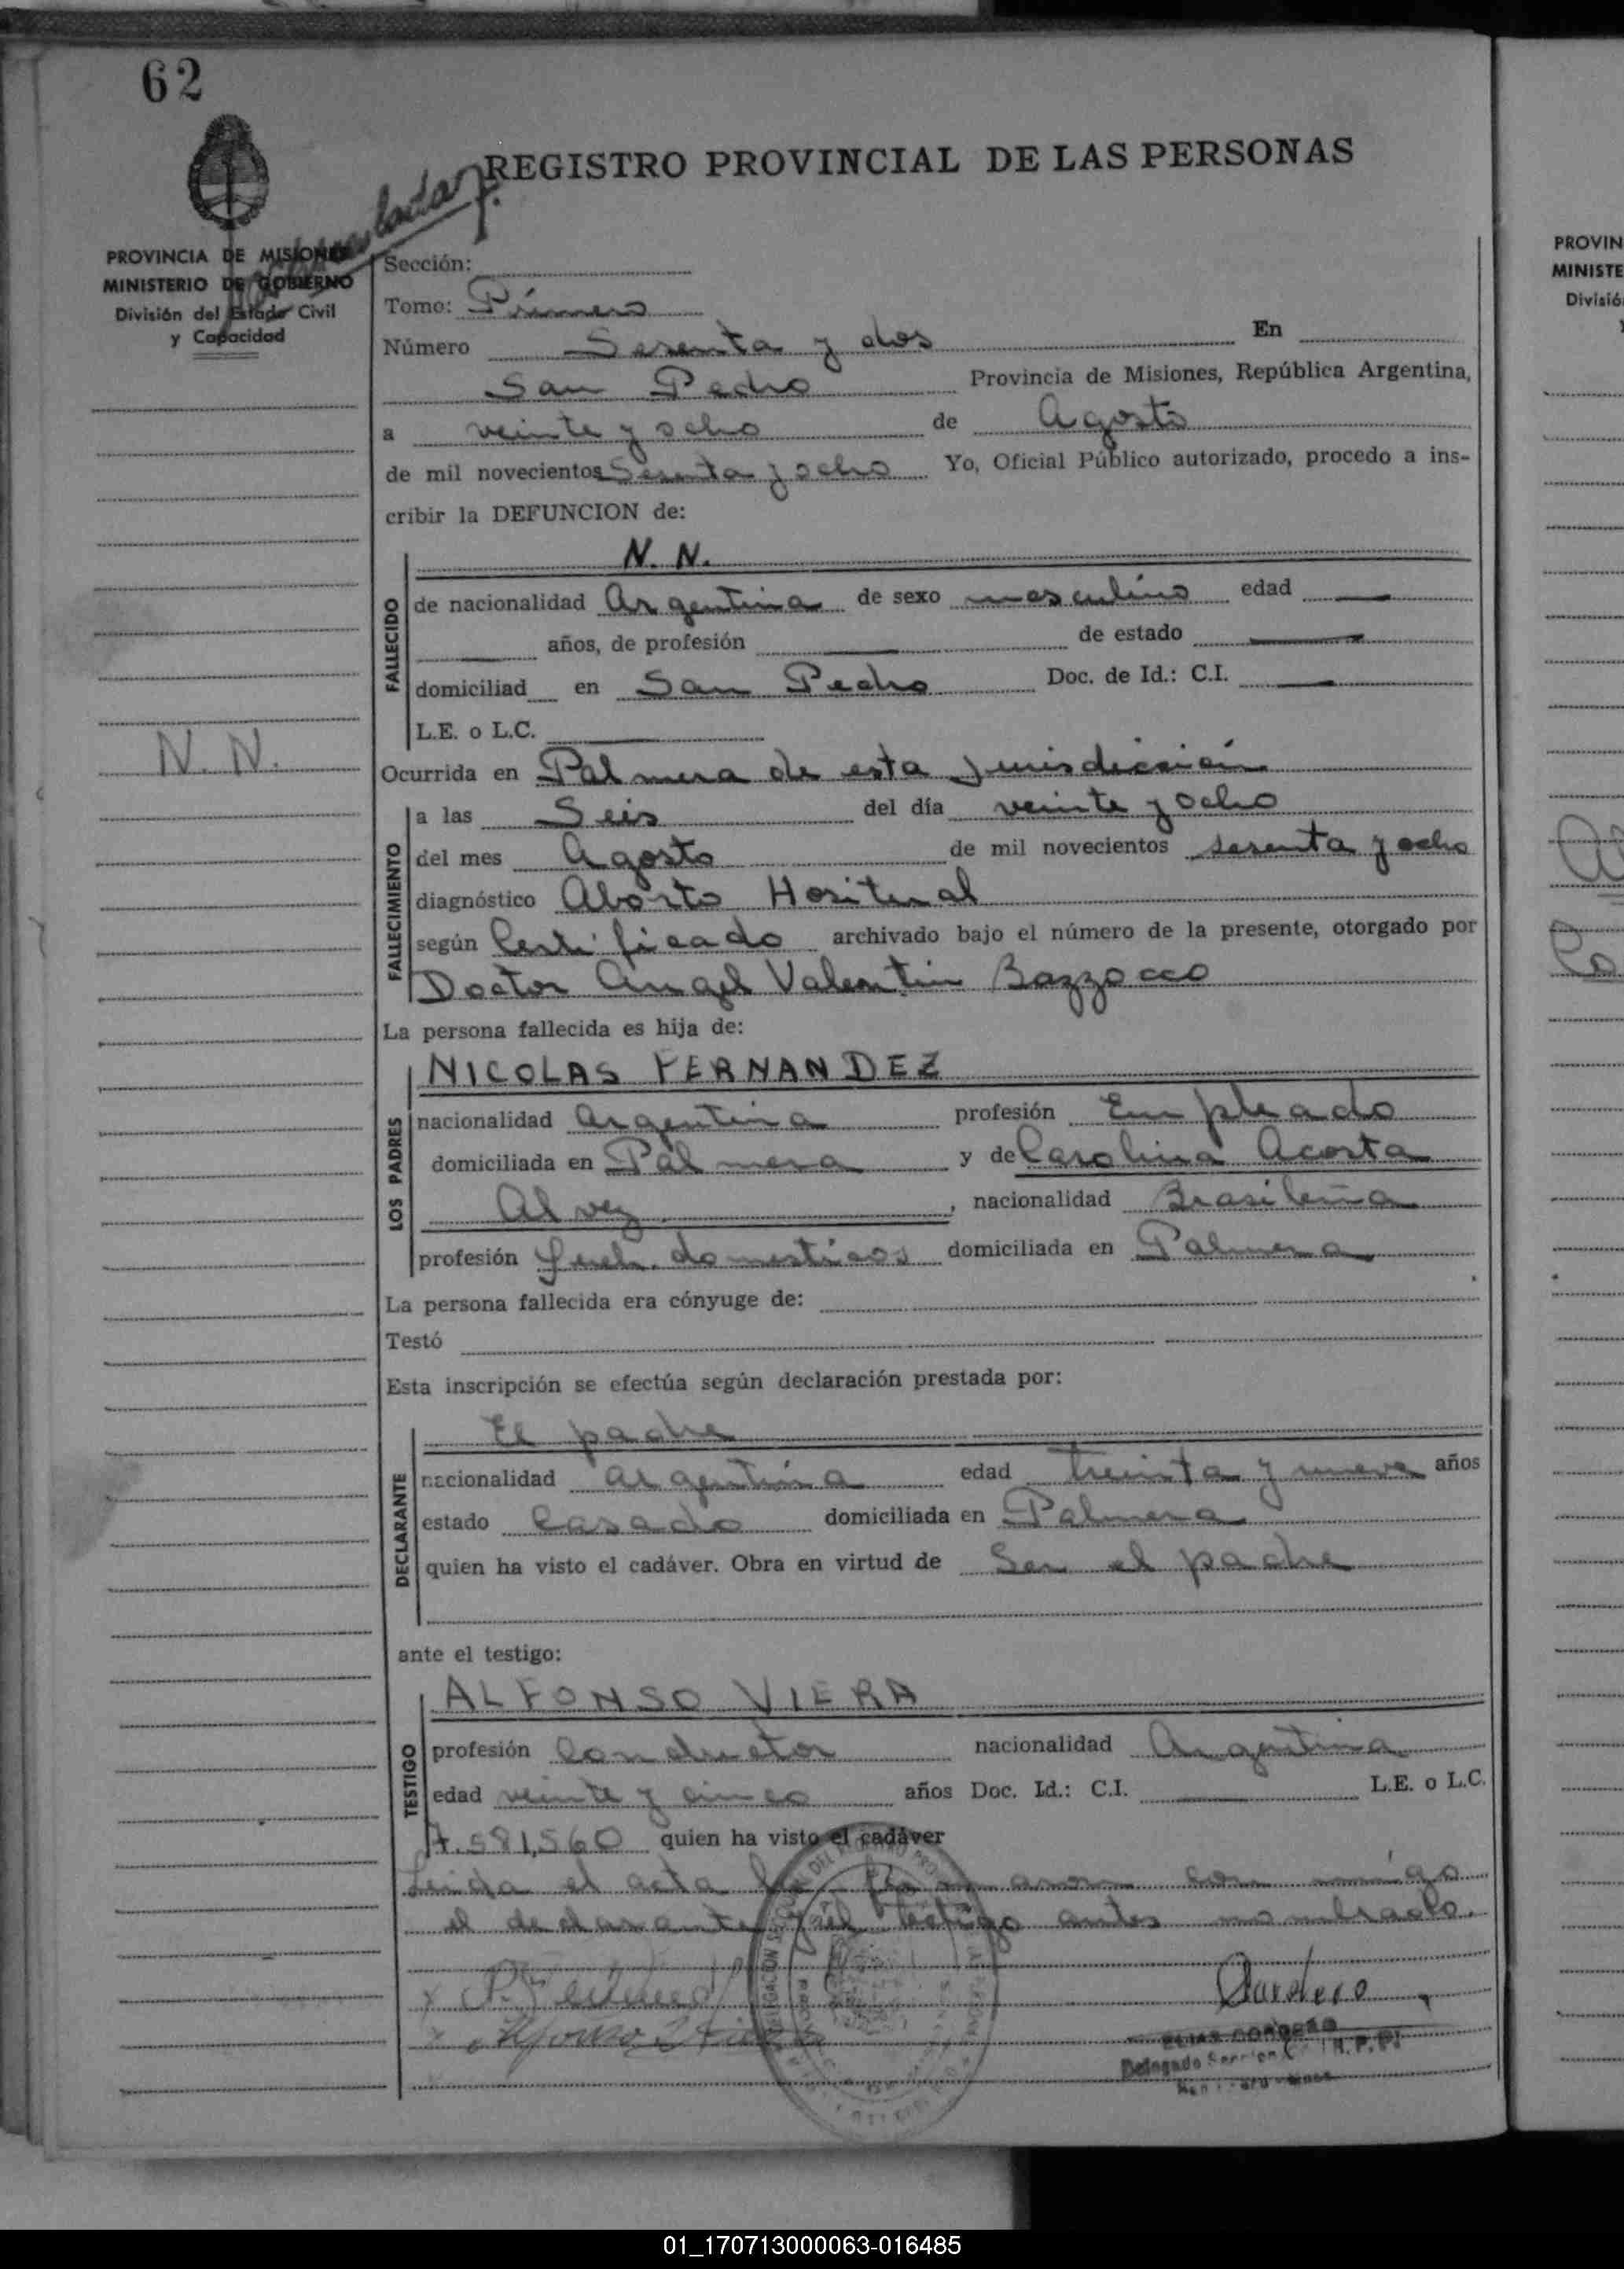 62
REGISTRO PROVINCIAL DE LAS PERSONAS
PROVINCIA DE MISIONES
MINISTERIO DE GOBIERNO
División del Estado Civil
y Capacidad
Sección:
Tomo: Primero
Número Sesenta y dos En
San Pedro Provincia de Misiones, República Argentina,
a veinte y ocho de Agosto
de mil novecientos Sesenta y ocho Yo, Oficial Público autorizado, procedo a ins-
cribir la DEFUNCION de:
N. N.
FALLECIDO
de nacionalidad Argentina de sexo masculino edad —
— años, de profesión — de estado —
domiciliad en San Pedro Doc. de Id.: C.I. —
L.E. o L.C. —
N. N.
Ocurrida en Palmera de esta
FALLECIMIENTO
a las Seis del día veinte y ocho
del mes Agosto de mil novecientos sesenta y ocho
diagnóstico Aborto
según Certificado archivado bajo el número de la presente, otorgado por
Doctor Angel Valentin Bazzocco
La persona fallecida es hija de:
NICOLAS FERNANDEZ
LOS PADRES
nacionalidad Argentina profesión Empleado
domiciliada en Palmera y de Carolina Acosta
Alvez, nacionalidad Brasileña
profesión domesticos domiciliada en Palmera
La persona fallecida era cónyuge de:
Testó
Esta inscripción se efectúa según declaración prestada por:
El padre
DECLARANTE
nacionalidad argentina edad treinta y nueve años
estado Casado domiciliada en Palmera
quien ha visto el cadáver. Obra en virtud de Ser el padre
ante el testigo:
ALFONSO VIERA
TESTIGO
profesión Conductor nacionalidad Argentina
edad veinte y cinco años Doc. Id.: C.I. — L.E. o L.C.
7.581,560 quien ha visto el cadáver
Leida el acta la firmaron con migo
el declarante y el testigo antes nombrado.
PROVIN
MINISTE
Divisió
01_170713000063-016485